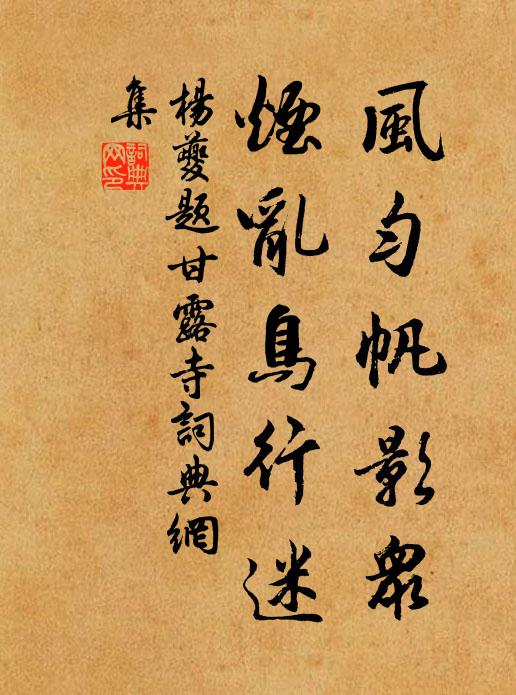 風勻帆影衆
煙亂鳥行迷
楊夔題甘露寺詞典網
集
詞典網印